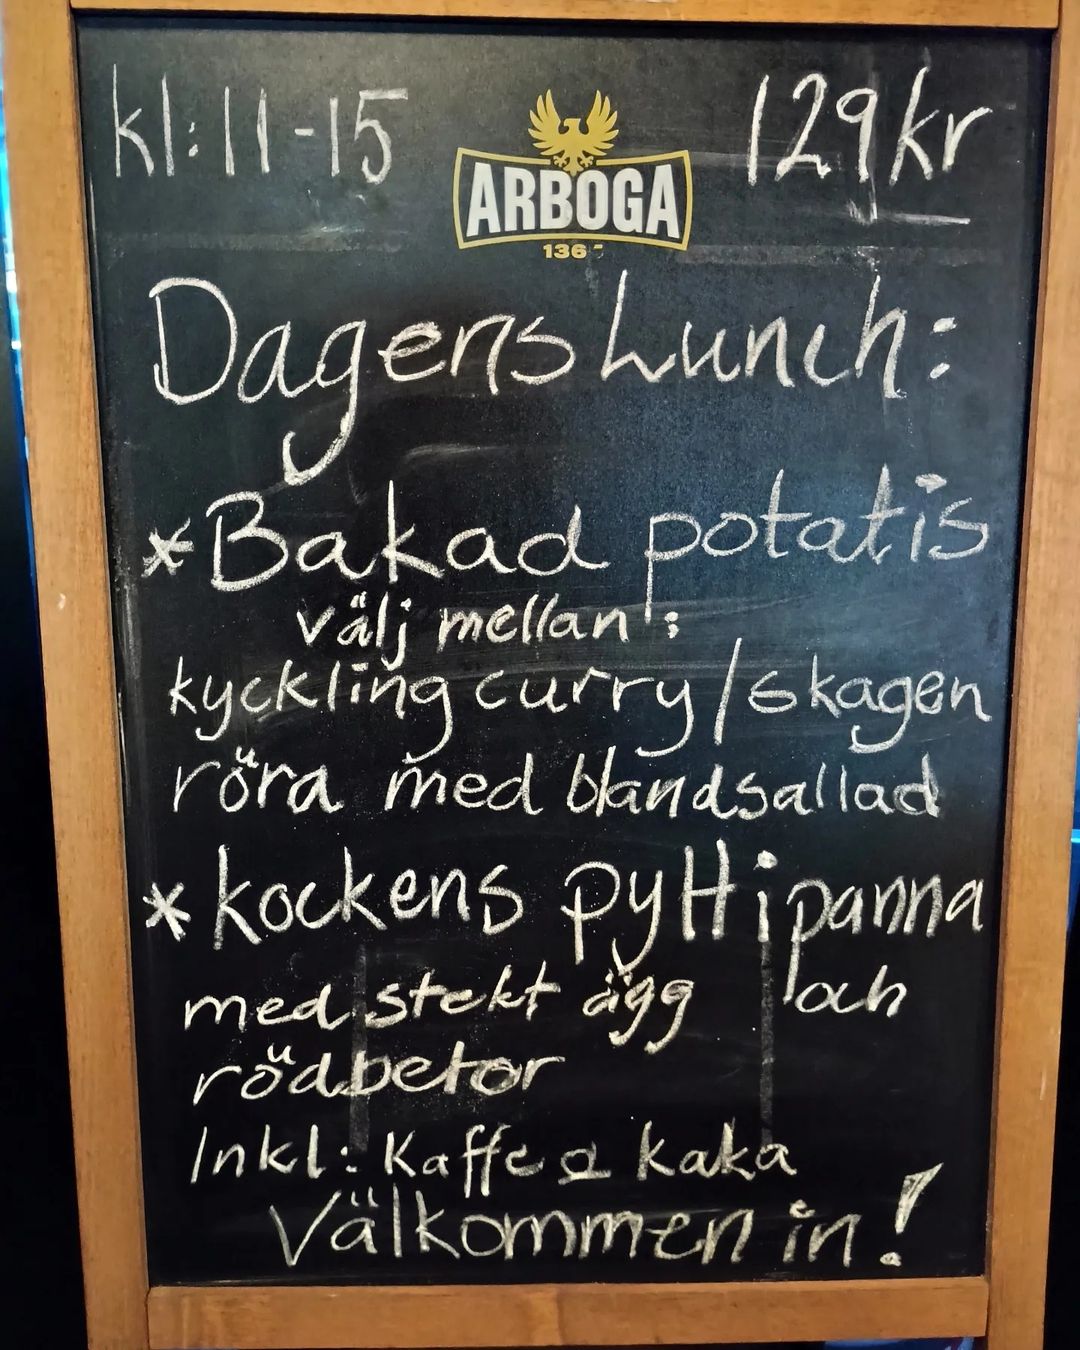 kl: 11-15
129kr
ARBOGA
Dagens Lunch:
*Bakad potatis
välj mellan:
kyckling curry / skagen
röra med blandsallad
*kockens pytt i panna
med stekt ägg och
rödbetor
Inkl: Kaffe o kaka
Välkommen in!